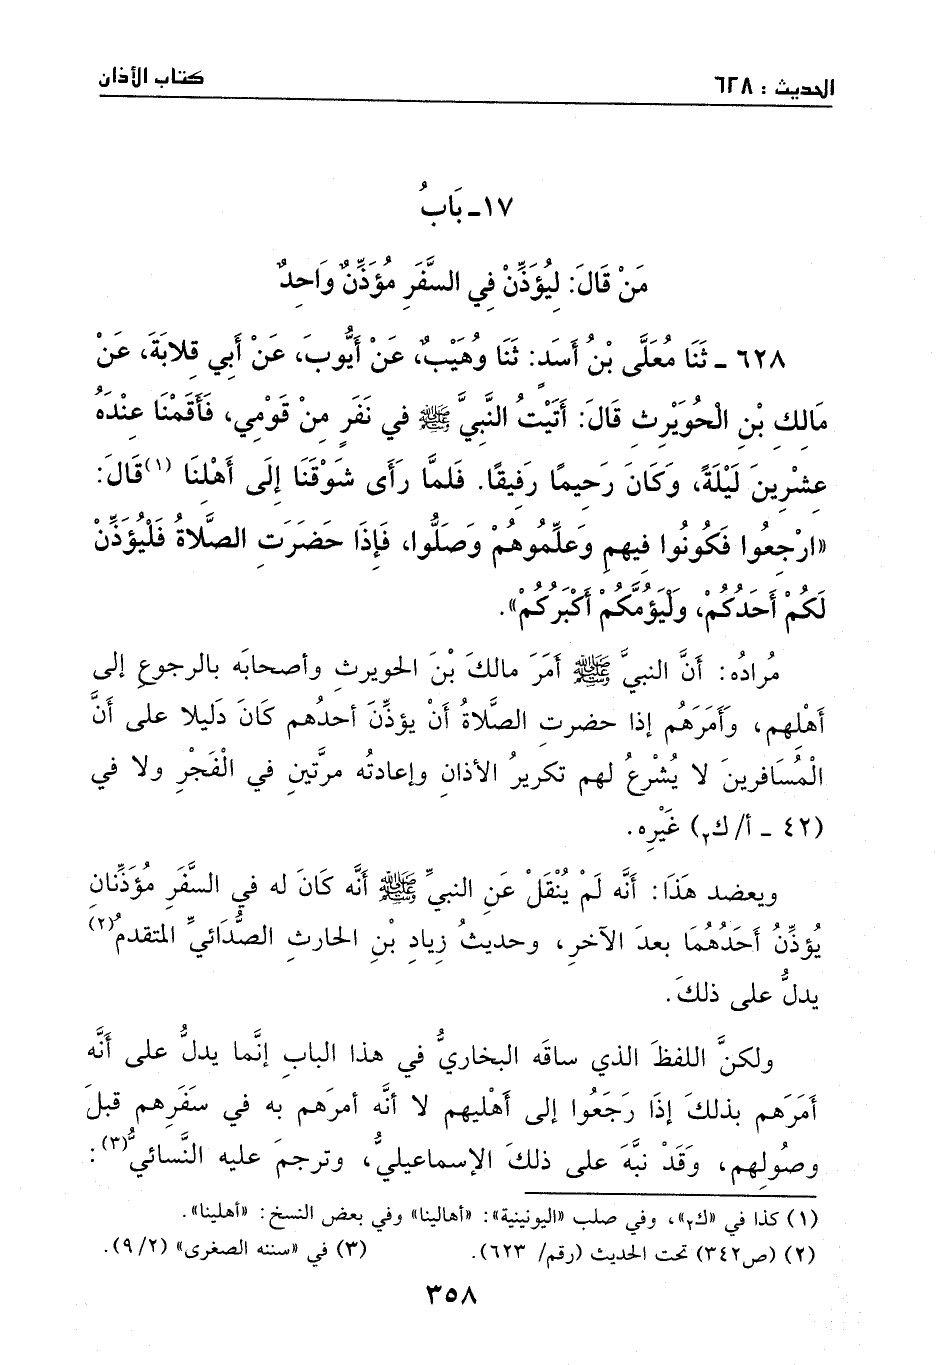 الحديث : ٦٢٨
كتاب الأذان
١٧ - بَابُ
مَنْ قَالَ: لِيُؤَذِّنْ فِي السَّفَرِ مُؤَذِّنٌ وَاحِدٌ
٦٢٨ - ثَنَا مُعَلَّى بْنُ أَسَدٍ: ثَنَا وُهَيْبٌ، عَنْ أَيُّوبَ، عَنْ أَبِي قِلابَةَ، عَنْ
مَالِكِ بْنِ الْحُوَيْرِثِ قَالَ: أَتَيْتُ النَّبِيَّ ﷺ فِي نَفَرٍ مِنْ قَوْمِي، فَأَقَمْنَا عِنْدَهُ
عِشْرِينَ لَيْلَةً، وَكَانَ رَحِيمًا رَفِيقًا. فَلَمَّا رَأَى شَوْقَنَا إِلَى أَهْلِنَا (١) قَالَ:
«ارْجِعُوا فَكُونُوا فِيهِمِ وَعَلِّمُوهُمْ وَصَلُّوا، فَإِذَا حَضَرَتِ الصَّلاةُ فَلْيُؤَذِّنْ
لَكُمْ أَحَدُكُمْ، وَلْيَؤُمَّكُمْ أَكْبَرُكُمْ».
مُرادُه: أَنَّ النبيَّ ﷺ أَمَرَ مالكَ بْنَ الحويرثِ وأصحابَه بالرجوعِ إلى
أَهْلِهم، وأَمَرَهُم إذا حضرتِ الصَّلاةُ أَنْ يؤذِّنَ أحدُهم كَانَ دَليلا على أنَّ
الْمُسَافرينَ لا يُشْرعُ لهم تكريرُ الأذانِ وإعادتُه مرَّتينِ في الْفَجْرِ ولا في
(٤٢ - أ/ ك٢) غَيْرِه.
ويعضد هَذَا: أنَّه لَمْ يُنْقَلْ عَنِ النبيِّ ﷺ أنَّه كَانَ له في السفَرِ مؤذِّنانِ
يُؤذِّنُ أَحَدُهُمَا بعدَ الآخرِ، وحديثُ زيادِ بْنِ الحارثِ الصُّدَائيِّ المتقدمُ (٢)
يدلُّ على ذلكَ.
ولكنَّ اللفظَ الذي ساقَه البخاريُّ في هذا البابِ إنَّما يدلُّ على أنَّه
أمَرَهم بذلكَ إذَا رَجَعُوا إلى أَهْليهم لا أنَّه أمرَهم به في سفَرِهم قبلَ
وصُولِهم، وقَدْ نبَّهَ على ذلكَ الإسماعيليُّ، وترجمَ عليه النَّسائيُّ (٣):
(١) كذا في «ك٢»، وفي صلب «اليونينية»: «أهالينا» وفي بعض النسخ: «أهلينا».
(٢) (ص٣٤٢) تحت الحديث (رقم/ ٦٢٣).
(٣) في «سننه الصغرى» (٩/٢).
٣٥٨